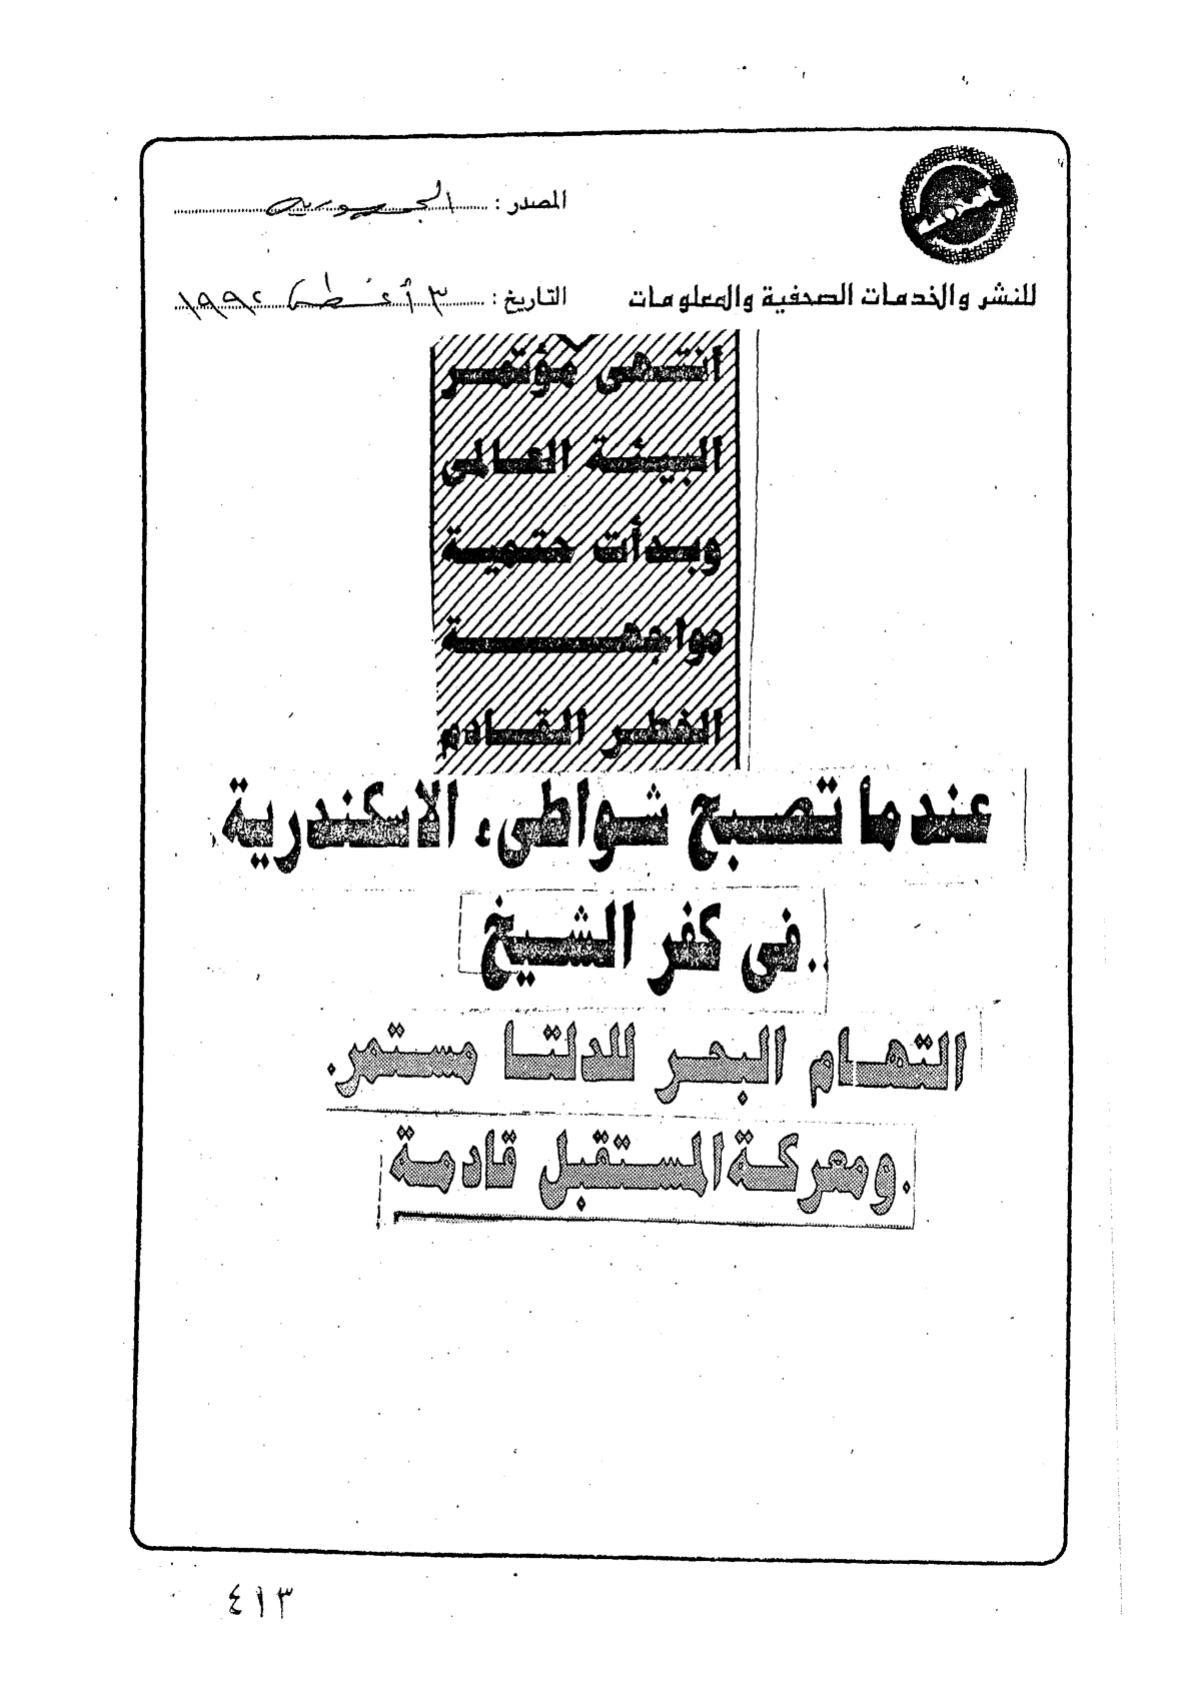 المصدر : الجمهورية
للنشر والخدمات الصحفية والمعلومات
التاريخ : ٣ أغسطس ١٩٩٢
أنتهى مؤتمر
البيئة العالمى
وبدأت حتمية
مواجهة
الخطر القادم
عندما تصبح شواطىء الاسكندرية
.. فى كفر الشيخ
التهام البحر للدلتا مستمر .
. ومعركة المستقبل قادمة
٤١٣